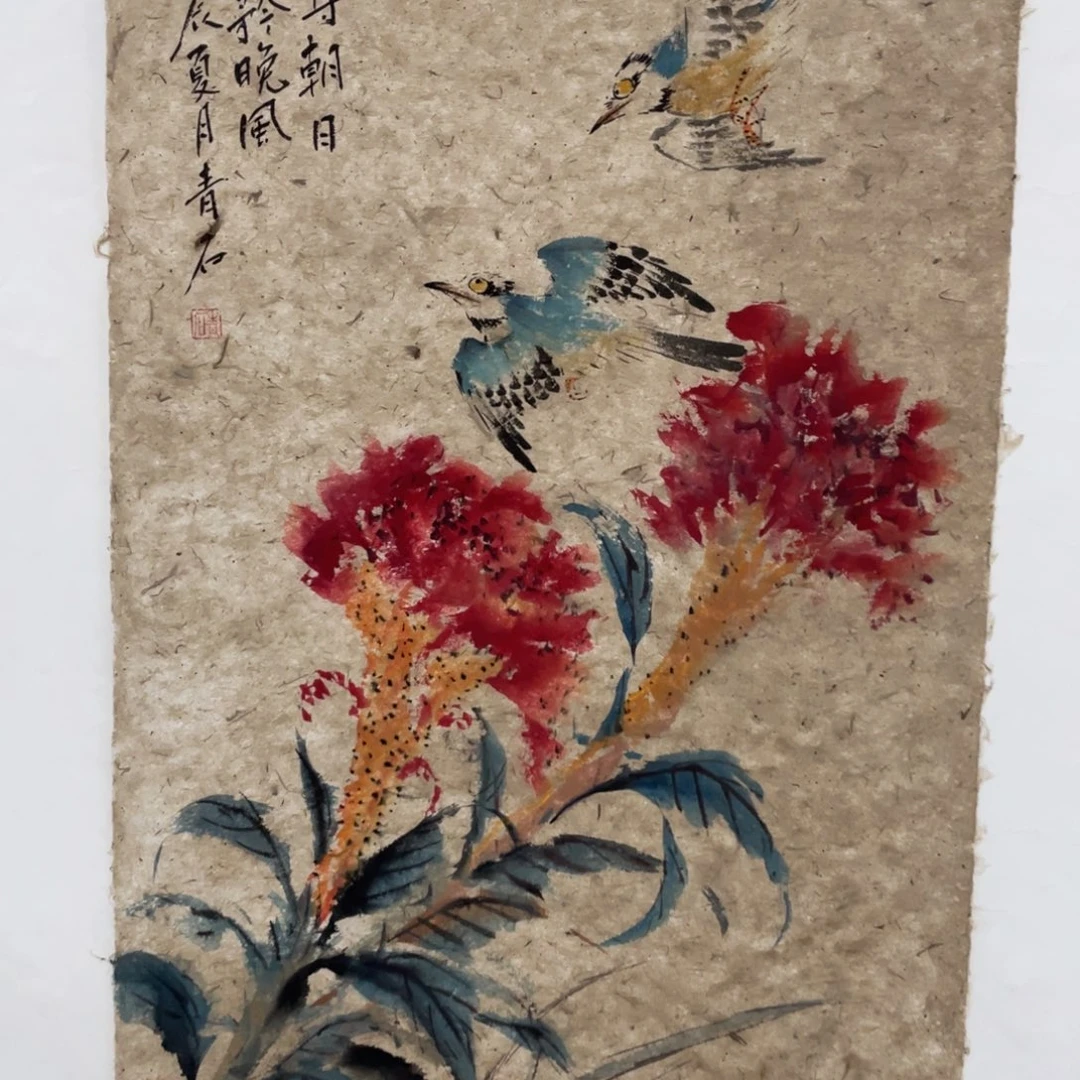 朝日
晚風
辰夏月青石